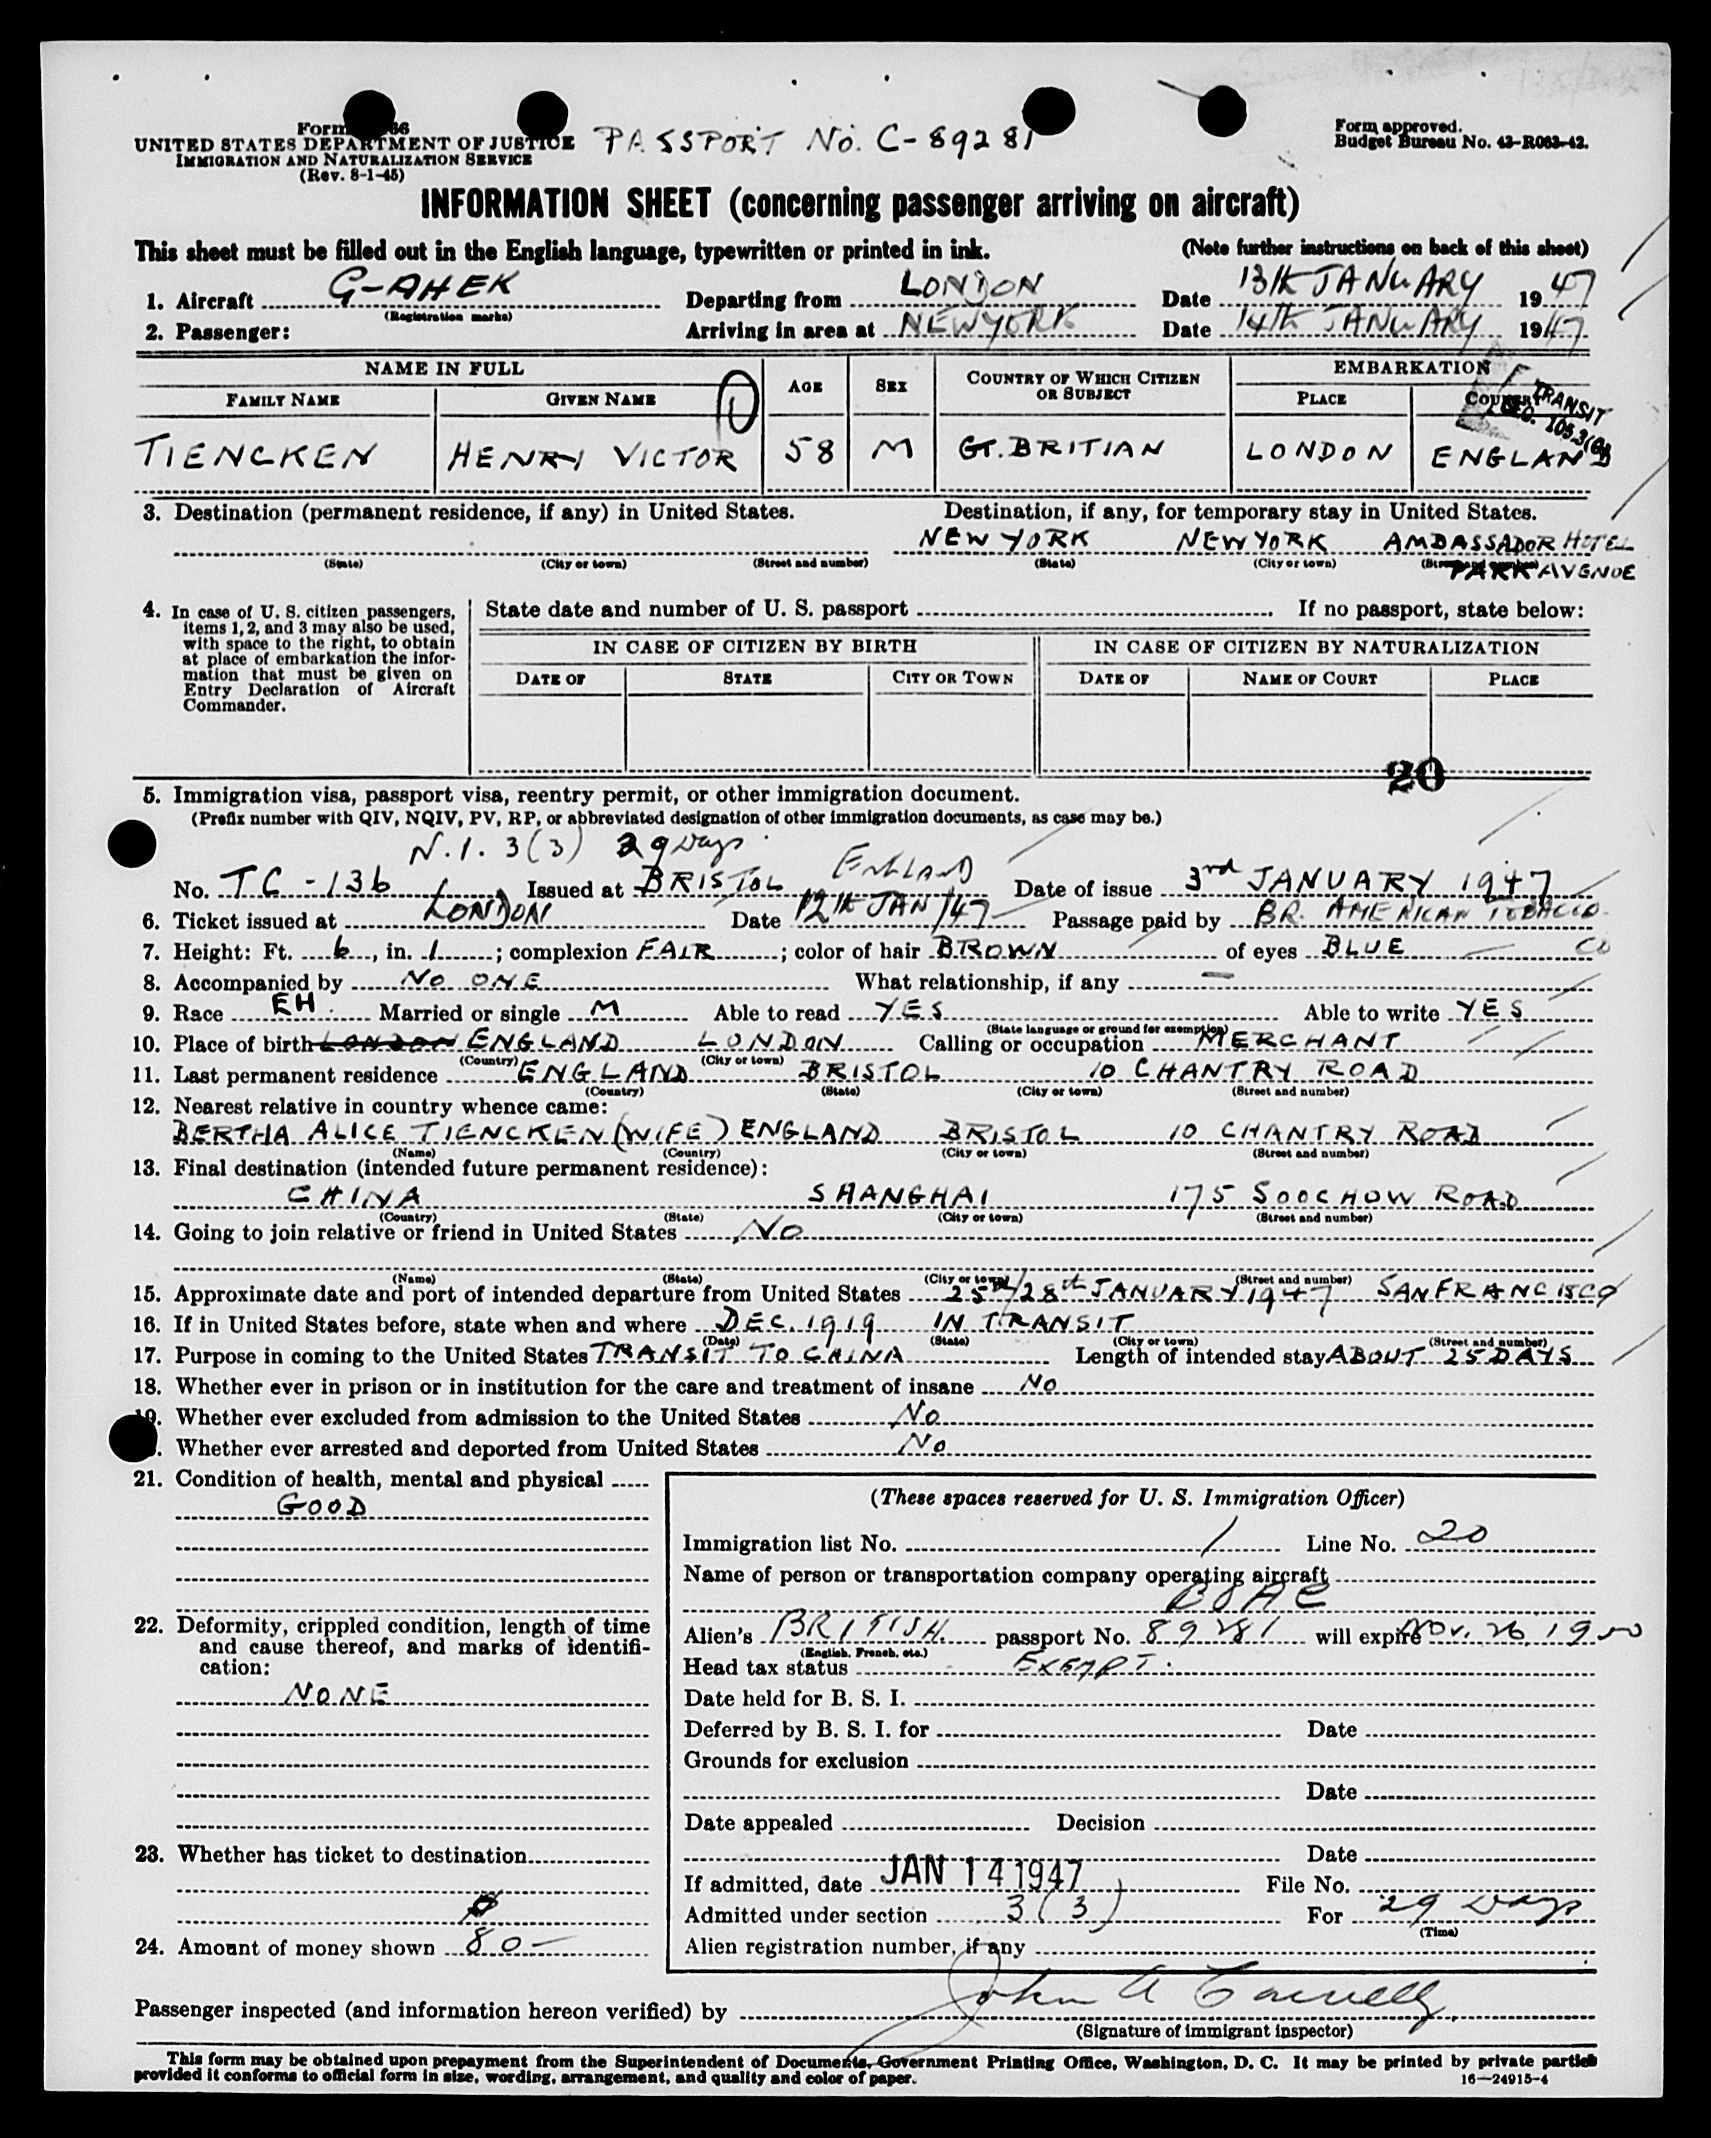 Form 66
UNITED STATES DEPARTMENT OF JUSTICE
IMMIGRATION AND NATURALIZATION SERVICE
(Rev. 8-1-45)
PASSPORT No. C-89281
Form approved.
Budget Bureau No. 43-R063-42.
INFORMATION SHEET (concerning passenger arriving on aircraft)
This sheet must be filled out in the English language, typewritten or printed in ink. (Note further instructions on back of this sheet)
1. Aircraft G-AHEK Departing from LONDON Date 13th JANUARY 1947
(Registration marks)
2. Passenger: Arriving in area at NEWYORK Date 14th JANUARY 1947
NAME IN FULL AGE SEX COUNTRY OF WHICH CITIZEN OR SUBJECT EMBARKATION
FAMILY NAME GIVEN NAME PLACE COUNTRY
TRANSIT
SEC. 105.3(
TIENCKEN HENRY VICTOR 58 M GT. BRITIAN LONDON ENGLAND
3. Destination (permanent residence, if any) in United States. Destination, if any, for temporary stay in United States.
NEW YORK NEW YORK AMBASSADOR HOTEL
(State) (City or town) (Street and number) (State) (City or town) (Street and number)
PARK AVENUE
4. In case of U. S. citizen passengers, items 1, 2, and 3 may also be used, with space to the right, to obtain at place of embarkation the information that must be given on Entry Declaration of Aircraft Commander.
State date and number of U. S. passport . If no passport, state below:
IN CASE OF CITIZEN BY BIRTH IN CASE OF CITIZEN BY NATURALIZATION
DATE OF STATE CITY OR TOWN DATE OF NAME OF COURT PLACE
20
5. Immigration visa, passport visa, reentry permit, or other immigration document.
(Prefix number with QIV, NQIV, PV, RP, or abbreviated designation of other immigration documents, as case may be.)
N.I. 3(3) 29 Days
No. TC-136 Issued at BRISTOL ENGLAND Date of issue 3rd JANUARY 1947
6. Ticket issued at LONDON Date 12th JAN/47 Passage paid by BR. AMERICAN TOBACCO CO
7. Height: Ft. 6, in. 1; complexion FAIR; color of hair BROWN of eyes BLUE
8. Accompanied by NO ONE What relationship, if any —
9. Race EH Married or single M Able to read YES Able to write YES
(State language or ground for exemption)
10. Place of birth LONDON ENGLAND LONDON Calling or occupation MERCHANT
(Country) (City or town)
11. Last permanent residence ENGLAND BRISTOL 10 CHANTRY ROAD
(Country) (State) (City or town) (Street and number)
12. Nearest relative in country whence came:
BERTHA ALICE TIENCKEN (WIFE) ENGLAND BRISTOL 10 CHANTRY ROAD
(Name) (Country) (City or town) (Street and number)
13. Final destination (intended future permanent residence):
CHINA SHANGHAI 175 SOOCHOW ROAD
(Country) (State) (City or town) (Street and number)
14. Going to join relative or friend in United States NO
(Name) (State) (City or town) (Street and number)
15. Approximate date and port of intended departure from United States 25th/28th JANUARY 1947 SANFRANCISCO
16. If in United States before, state when and where DEC. 1919 IN TRANSIT
(Date) (State) (City or town) (Street and number)
17. Purpose in coming to the United States TRANSIT TO CHINA Length of intended stay ABOUT 25 DAYS
18. Whether ever in prison or in institution for the care and treatment of insane NO
19. Whether ever excluded from admission to the United States NO
. Whether ever arrested and deported from United States NO
21. Condition of health, mental and physical
GOOD
22. Deformity, crippled condition, length of time and cause thereof, and marks of identification:
NONE
23. Whether has ticket to destination
24. Amount of money shown 80-
(These spaces reserved for U. S. Immigration Officer)
Immigration list No. 1 Line No. 20
Name of person or transportation company operating aircraft
BOAC
Alien's BRITISH passport No. 89281 will expire Nov. 26, 1950
(English, French, etc.)
Head tax status EXEMPT.
Date held for B. S. I.
Deferred by B. S. I. for Date
Grounds for exclusion
Date
Date appealed Decision
Date
If admitted, date JAN 14 1947 File No.
Admitted under section 3(3) For 29 Days
(Time)
Alien registration number, if any
Passenger inspected (and information hereon verified) by John A Connelly
(Signature of immigrant inspector)
This form may be obtained upon prepayment from the Superintendent of Documents, Government Printing Office, Washington, D. C. It may be printed by private parties
provided it conforms to official form in size, wording, arrangement, and quality and color of paper.
16—24915-4